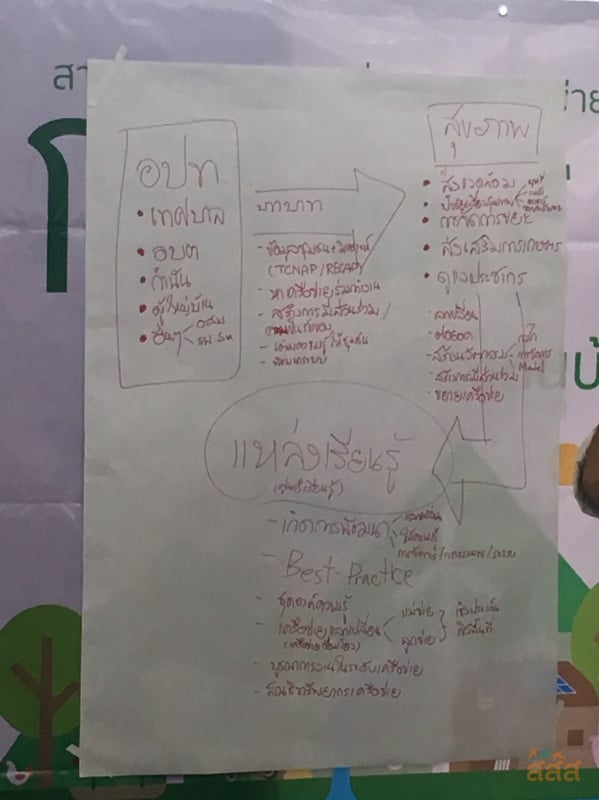 อปท.
• เทศบาล
• อบต
• กำนัน
• ผู้ใหญ่บ้าน
• อื่นๆ
อสม
รพ.สต
บทบาท
- ข้อมูลชุมชน +
(TCNAP/RECAP)
- หาเครือข่ายร่วมทำงาน
- สร้างการมีส่วนร่วม/
- เติมความรู้ให้ชุมชน
- พัฒนาระบบ
สุขภาพ
• สิ่งแวดล้อม
• การจัดการขยะ
• ส่งเสริมการเกษตร
• ดูแลประชากร
- แลกเปลี่ยน
- ต่อยอด
- สร้างนวัตกรรม
กลไก
Model
- สร้างการมีส่วนร่วม
- ขยายเครือข่าย
แหล่งเรียนรู้
(ศูนย์เรียนรู้)
- เกิดการพัฒนา
แลกเปลี่ยน
ให้ความรู้
การจัดการ/กระบวนการ/ระบบ
- Best-Practice
- ชุดองค์ความรู้
- เครือข่ายแลกเปลี่ยน
แม่ข่าย
ลูกข่าย
เชิงประเด็น
เชิงพื้นที่
- บูรณาการงานในระดับเครือข่าย
- ทรัพยากรเครือข่าย
สสส